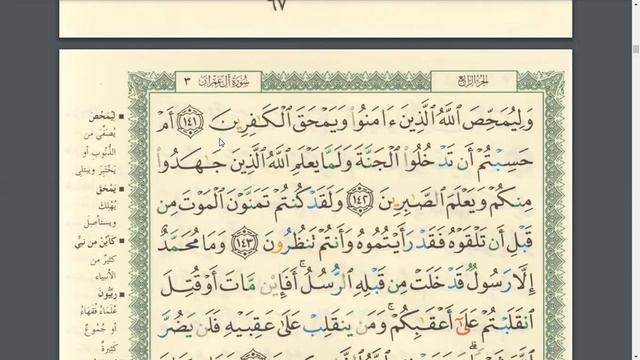 ٦٧
سُورَةُ آلِ عِمْرَان ٣
الجُزءُ الرَّابِعُ
وَلِيُمَحِّصَ ٱللَّهُ ٱلَّذِينَ ءَامَنُوا۟ وَيَمْحَقَ ٱلْكَٰفِرِينَ ١٤١ أَمْ
حَسِبْتُمْ أَن تَدْخُلُوا۟ ٱلْجَنَّةَ وَلَمَّا يَعْلَمِ ٱللَّهُ ٱلَّذِينَ جَٰهَدُوا۟
مِنكُمْ وَيَعْلَمَ ٱلصَّٰبِرِينَ ١٤٢ وَلَقَدْ كُنتُمْ تَمَنَّوْنَ ٱلْمَوْتَ مِن
قَبْلِ أَن تَلْقَوْهُ فَقَدْ رَأَيْتُمُوهُ وَأَنتُمْ تَنظُرُونَ ١٤٣ وَمَا مُحَمَّدٌ
إِلَّا رَسُولٌ قَدْ خَلَتْ مِن قَبْلِهِ ٱلرُّسُلُ ۚ أَفَإِي۟ن مَّاتَ أَوْ قُتِلَ
ٱنقَلَبْتُمْ عَلَىٰٓ أَعْقَٰبِكُمْ ۚ وَمَن يَنقَلِبْ عَلَىٰ عَقِبَيْهِ فَلَن يَضُرَّ
لِيُمَحِّصَ
يُصَفِّيَ من
الذُّنُوبِ أو
يَخْتَبِرَ ويبتلي
يَمْحَقَ
يُهْلِكَ
ويستأصل
كأيّن من نبيّ
كثيرٌ من
الأنبياء
رِبِّيُّونَ
عُلَمَاءُ فُقَهَاءُ
أو جُمُوعٌ
كَثِيرَةٌ